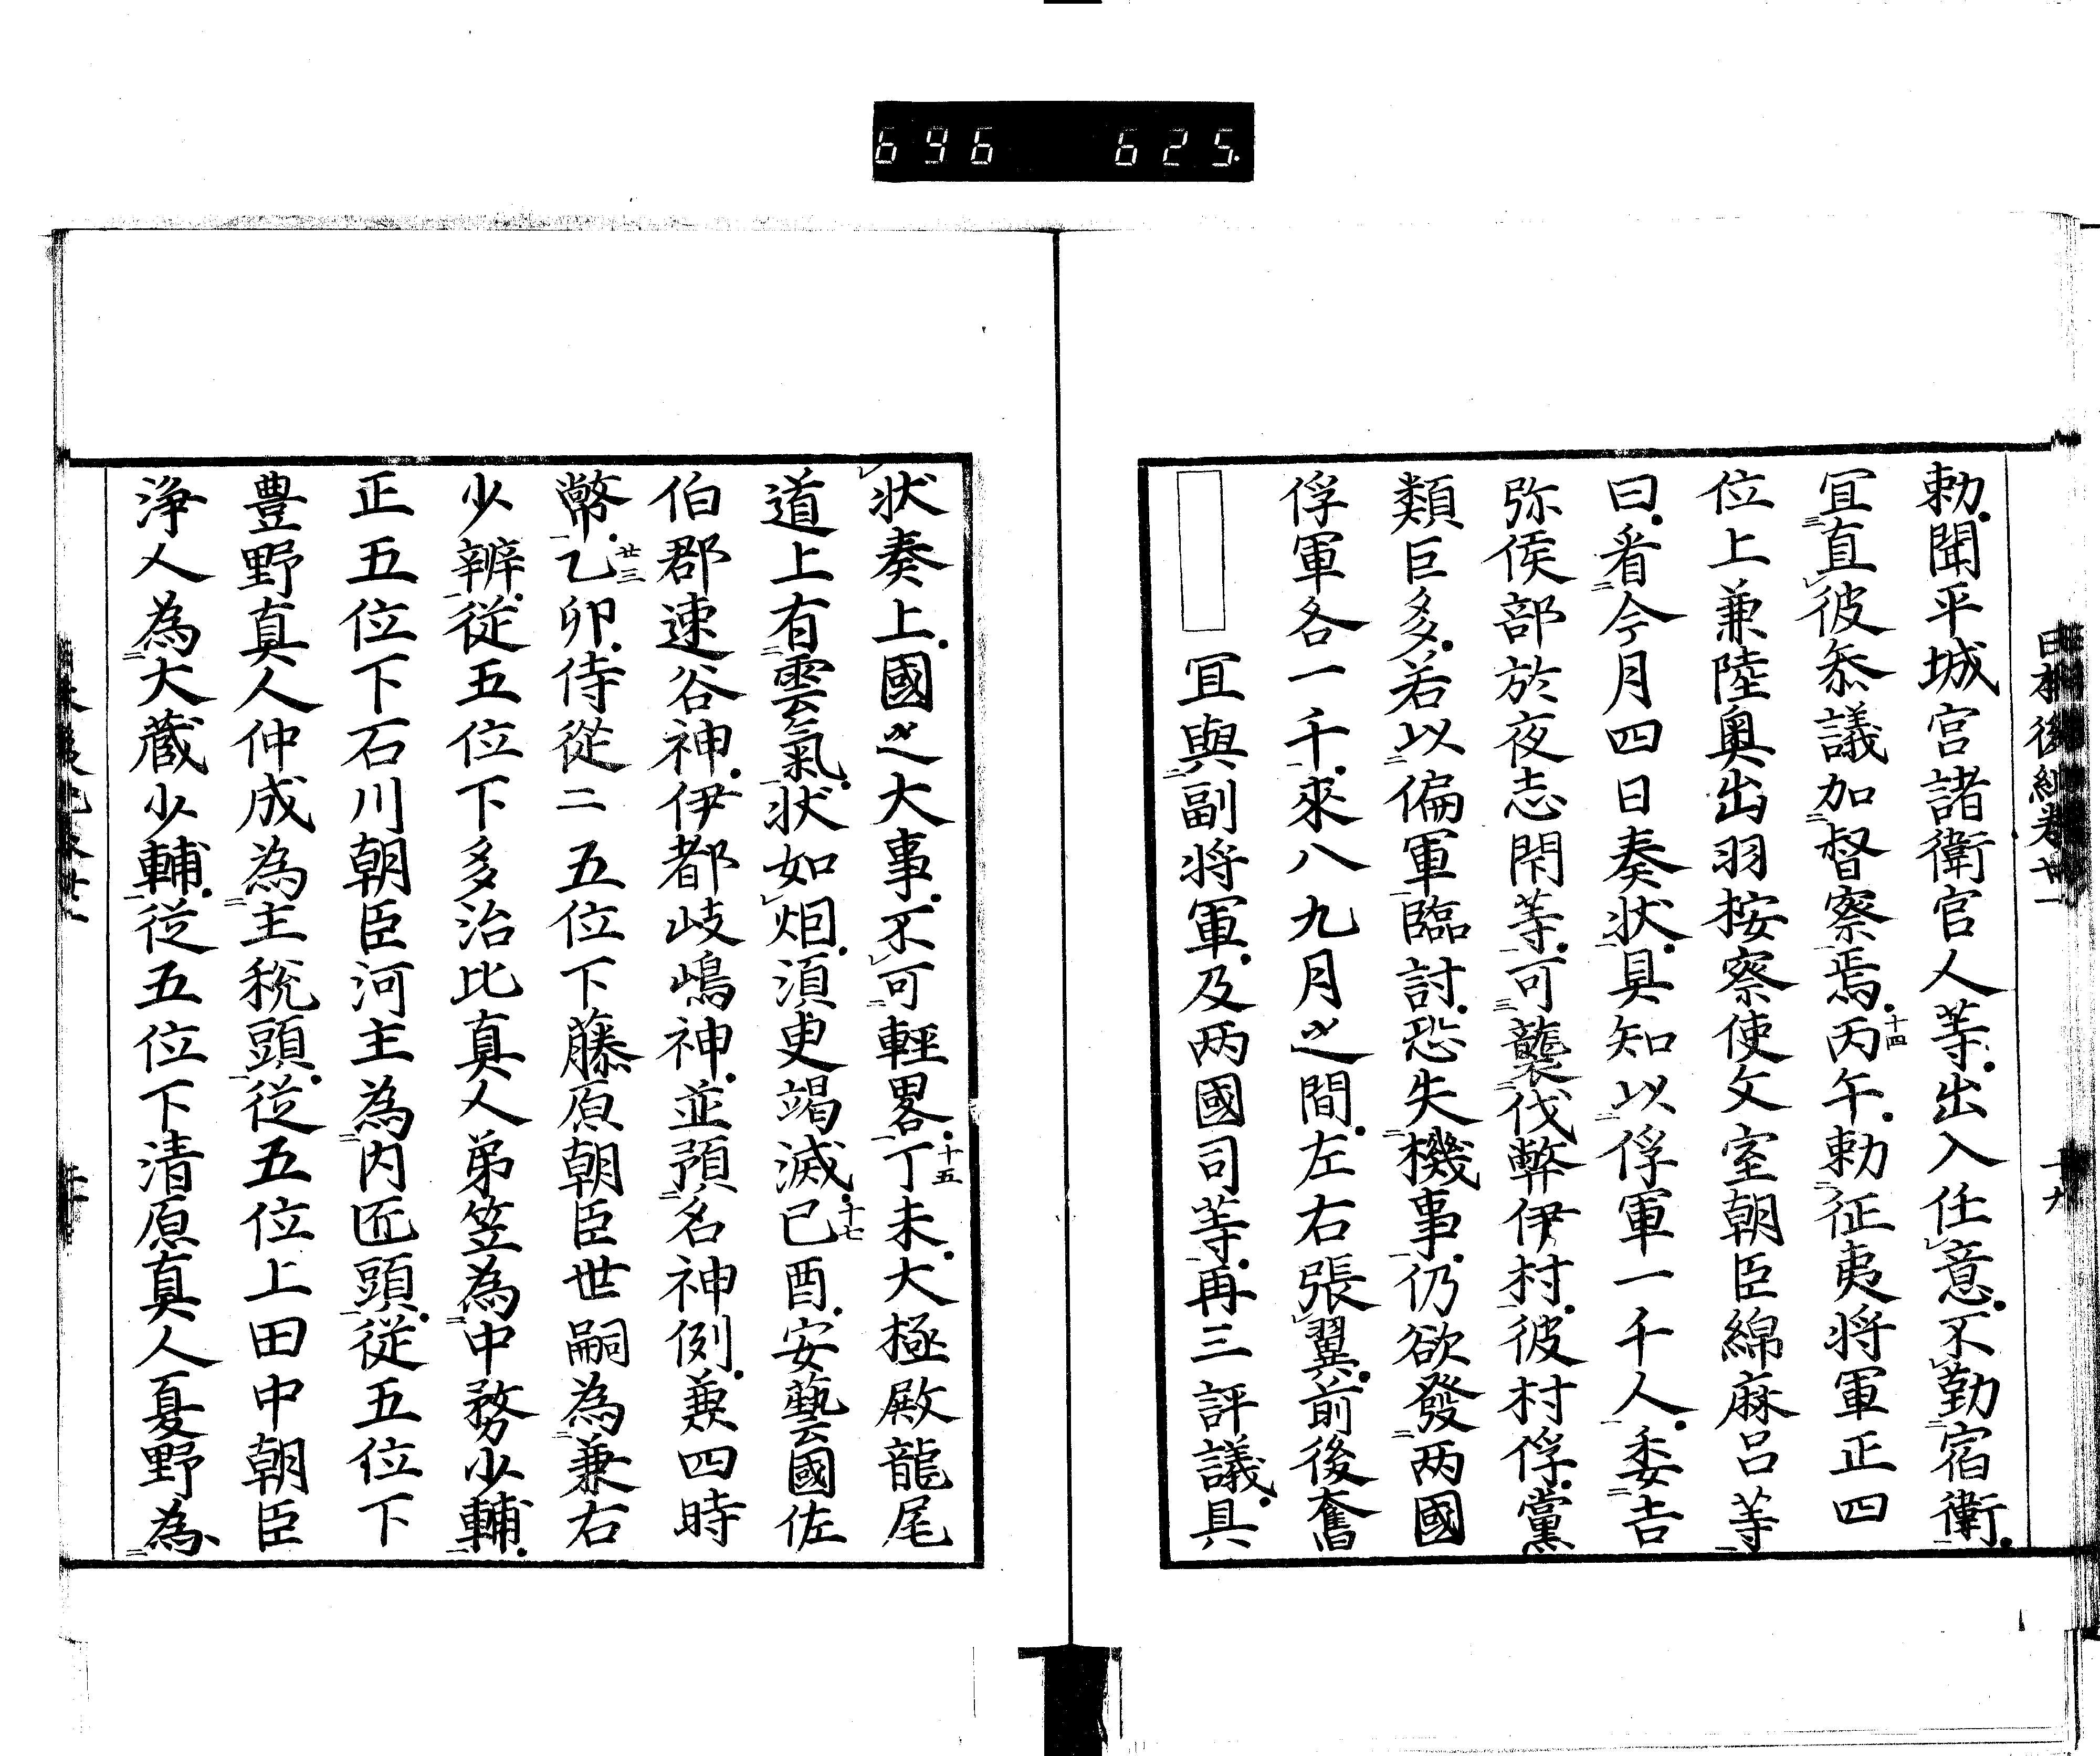 696 625
日本後紀卷廿一
十九
勅聞平城宮諸衛官人等出入任意不勤宿衛
冝直彼叅議加督察焉丙午十四勅征夷将軍正四
位上兼陸奥出羽按察使文室朝臣綿麻呂等
曰看今月四日奏状具知以俘軍一千人委吉
弥侯部於夜志閇等可襲伐弊伊村彼村俘黨
類巨多若以偏軍臨討恐失機事仍欲發两國
俘軍各一千來八九月之間左右張翼前後奮
冝與副将軍及两國司等再三評議具
状奏上國之大事不可輕畧丁未十五大極殿龍尾
道上有雲氣状如烟須臾竭滅己酉十七安藝國佐
伯郡速谷神伊都岐嶋神並預名神例兼四時
幣乙卯廿三侍從二五位下藤原朝臣世嗣為兼右
少辨從五位下多治比真人弟笠為中務少輔
正五位下石川朝臣河主為内匠頭從五位下
豊野真人仲成為主税頭從五位上田中朝臣
浄人為大蔵少輔從五位下清原真人夏野為